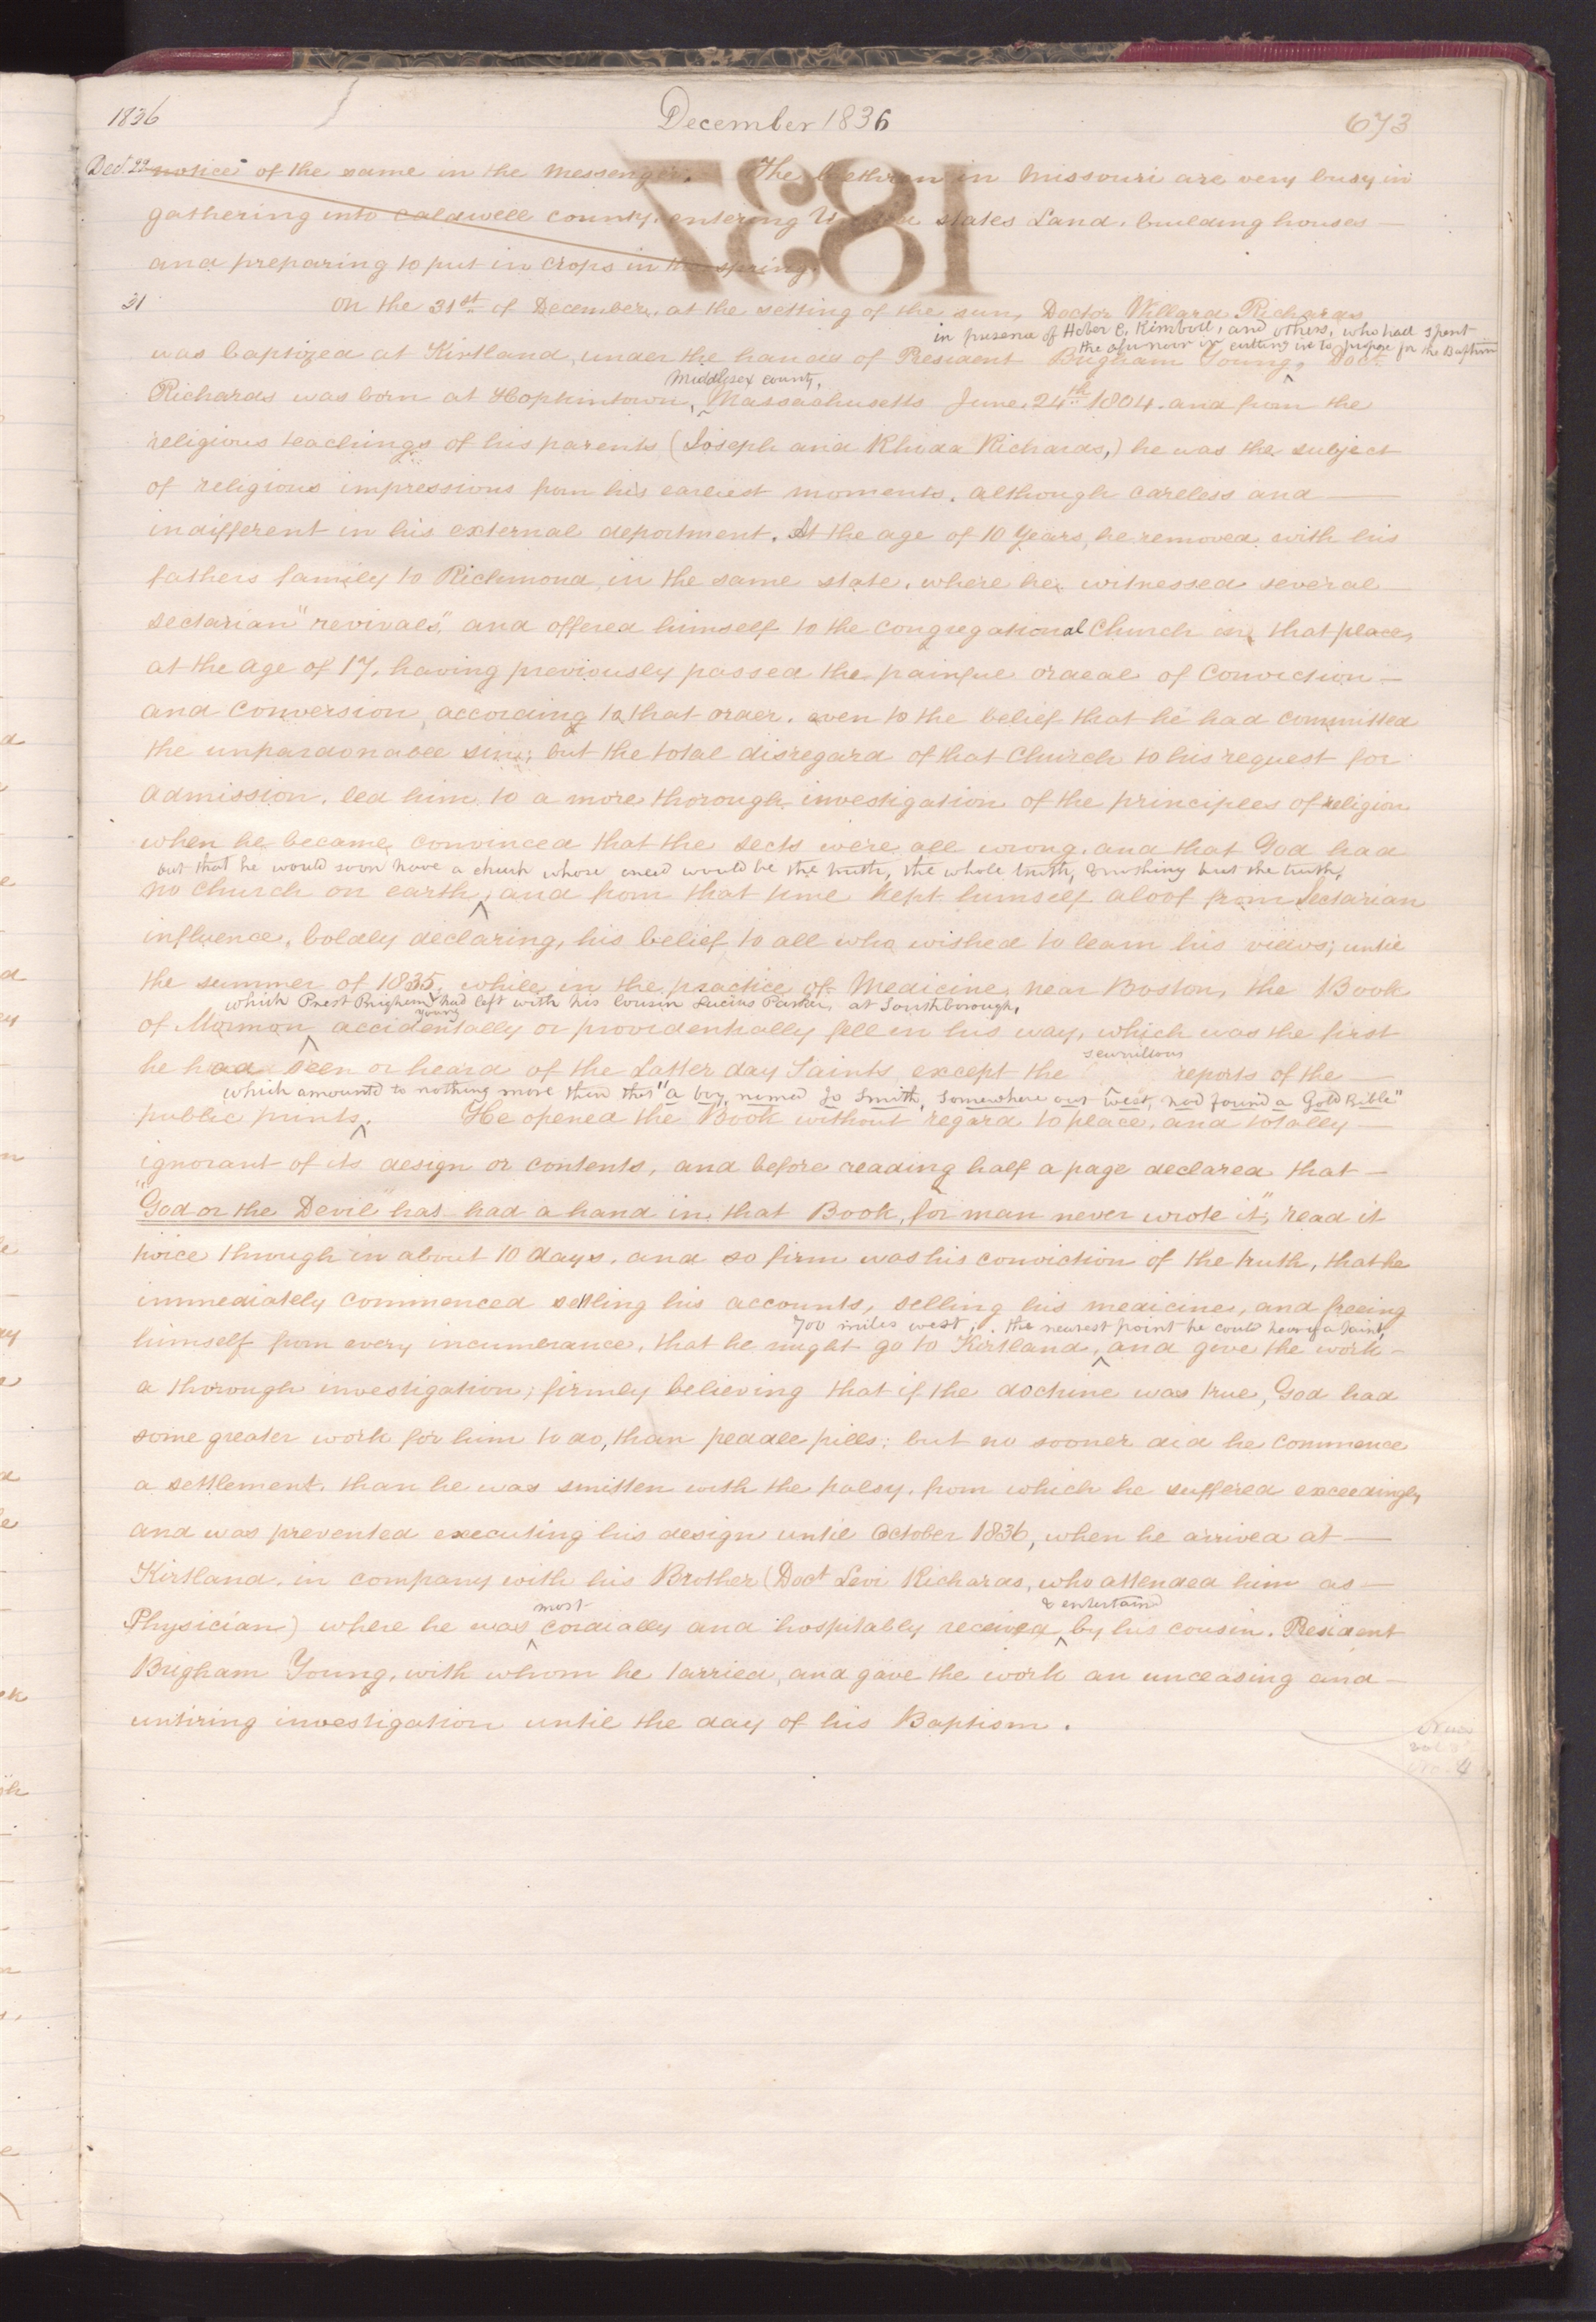 1836 December 1836 673
Dec. 22 notice of the same in the Messenger. The brethren in Missouri are very busy in
gathering into Caldwell county, entering United states Land, building houses
and preparing to put in crops in the spring.
1837
31 On the 31st of December, at the setting of the sun, Doctor Willard Richards
in presence of Heber C. Kimball, and others, who had spent
the afternoon in cutting ice to prepare for the Baptism
was baptized at Kirtland, under the hands of President Brigham Young, Doct.
Middlesex county,
Richards was born at Hopkintown, Massachusetts June, 24th 1804. and from the
religious teachings of his parents (Joseph and Rhoda Richards,) he was the subject
of religious impressions from his earliest moments, although careless and
indifferent in his external deportment. At the age of 10 years, he removed with his
fathers family to Richmond, in the same state, where he witnessed several
sectarian "revivals", and offered himself to the Congregational Church in that place,
at the age of 17, having previously passed the painful ordeal of Conviction
and Conversion, according to that order. even to the belief that he had committed
the unpardonable sin; but the total disregard of that Church to his request for
admission, led him to a more thorough investigation of the principles of religion
when he became convinced that the sects were all wrong, and that God had
but that he would soon have a church whose creed would be the truth, the whole truth, & nothing but the truth,
no church on earth, and from that time kept himself aloof from Sectarian
influence, boldly declaring, his belief, to all who wished to learn his views; until
the summer of 1835, while, in the practice of Medicine, near Boston, the Book
which Prest Brigham Young had left with his cousin Lucius Parker, at Southborough,
of Mormon accidentally or providentially fell in his way, which was the first
he had seen or heard of the Latter day Saints, except the scurrilous reports of the
which amounted to nothing more than that "a boy, named Jo Smith, somewhere out west, had found a Gold Bible"
public prints. He opened the Book without regard to place, and totally
ignorant of its design or contents, and before reading half a page declared that
"God or the Devil" has had a hand in that Book, for man never wrote it", read it
twice through in about 10 days, and so firm was his conviction of the truth, that he
immediately commenced settling his accounts, selling his medicine, and freeing
700 miles west, the nearest point he could hear of a saint,
himself from every incumerance, that he might go to Kirtland, and give the work
a thorough investigation; firmly believing that if the doctrine was true, God had
some greater work for him to do, than peddle pills; but no sooner did he commence
a settlement, than he was smitten with the palsy, from which he suffered exceedingly
and was prevented executing his design until October 1836, when he arrived at
Kirtland, in company with his Brother (Doct Levi Richards, who attended him as
most & entertained
Physician) where he was cordially and hospitably received by his cousin, President
Brigham Young, with whom he tarried, and gave the work an unceasing and
untiring investigation until the day of his Baptism.